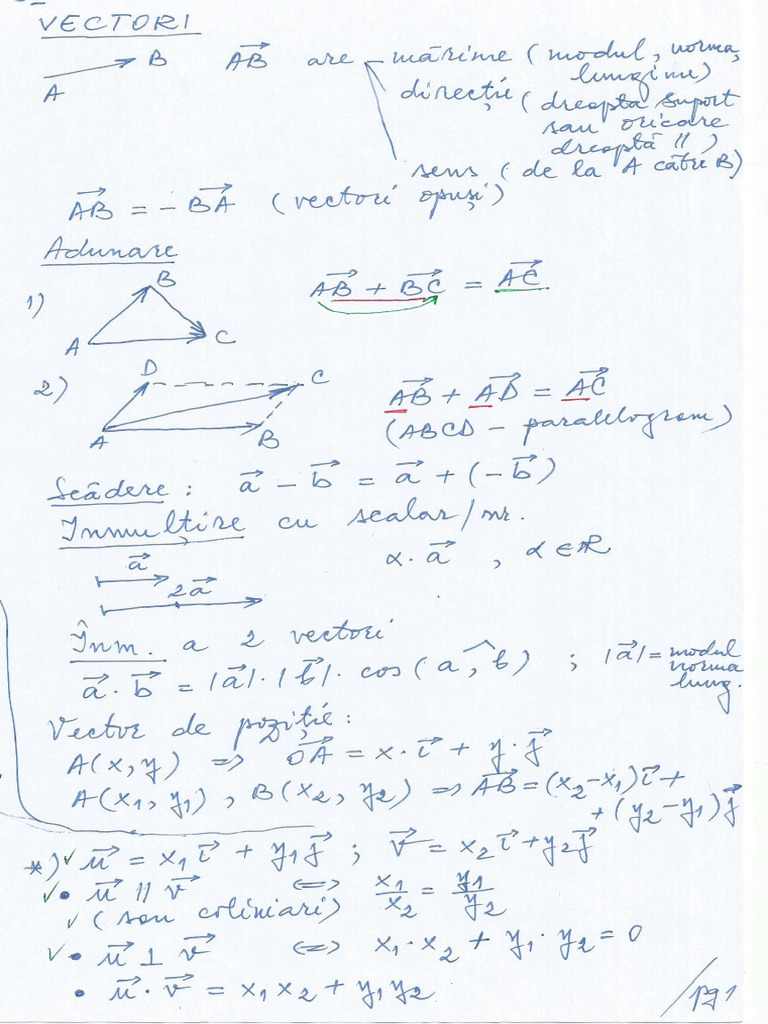 VECTORI
A B AB→ are – mărime (modul, norma, lungime)
direcție (dreapta suport
sau oricare
dreaptă ||)
sens (de la A către B)
AB→ = - BA→ (vectori opuși)
Adunare
1) A B C AB→ + BC→ = AC→
2) A B C D AB→ + AD→ = AC→
(ABCD - paralelogram)
Scădere : a→ - b→ = a→ + (-b→)
Inmulțire cu scalar/nr.
a→ α · a→ , α ∈ R
2a→
Înm. a 2 vectori
a→ · b→ = |a→| · |b→| · cos(a,b) ; |a→| = modul
norma
lung.
Vector de poziție :
A(x,y) => OA→ = x · i→ + y · j→
A(x₁, y₁) , B(x₂, y₂) => AB→ = (x₂-x₁)i→ +
+ (y₂-y₁)j→
*) ✓ u→ = x₁ i→ + y₁ j→ ; v→ = x₂ i→ + y₂ j→
✓ • u→ || v→ <=> x₁/x₂ = y₁/y₂
✓ (sau coliniari)
✓ • u→ ⊥ v→ <=> x₁ · x₂ + y₁ · y₂ = 0
• u→ · v→ = x₁x₂ + y₁y₂
/pg 1